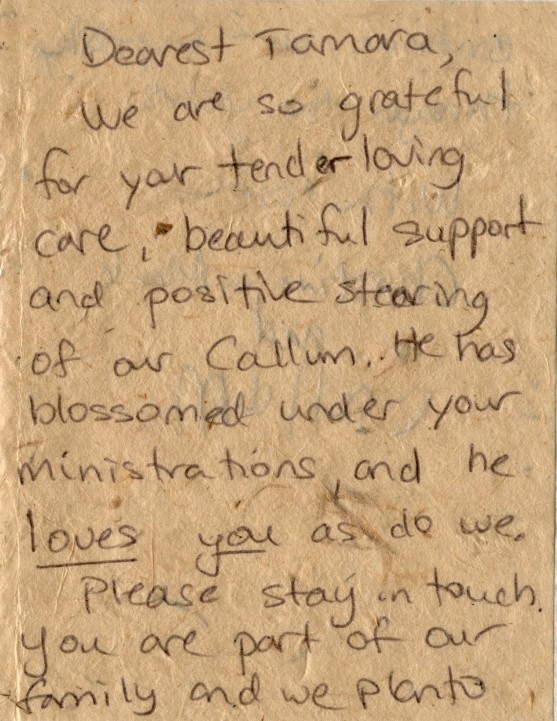 Dearest Tamara,
We are so grateful
for your tender loving
care, beautiful support
and positive stearing
of our Callum. He has
blossomed under your
ministrations, and he
loves you as do we.
Please stay in touch.
you are part of our
family and we plan to